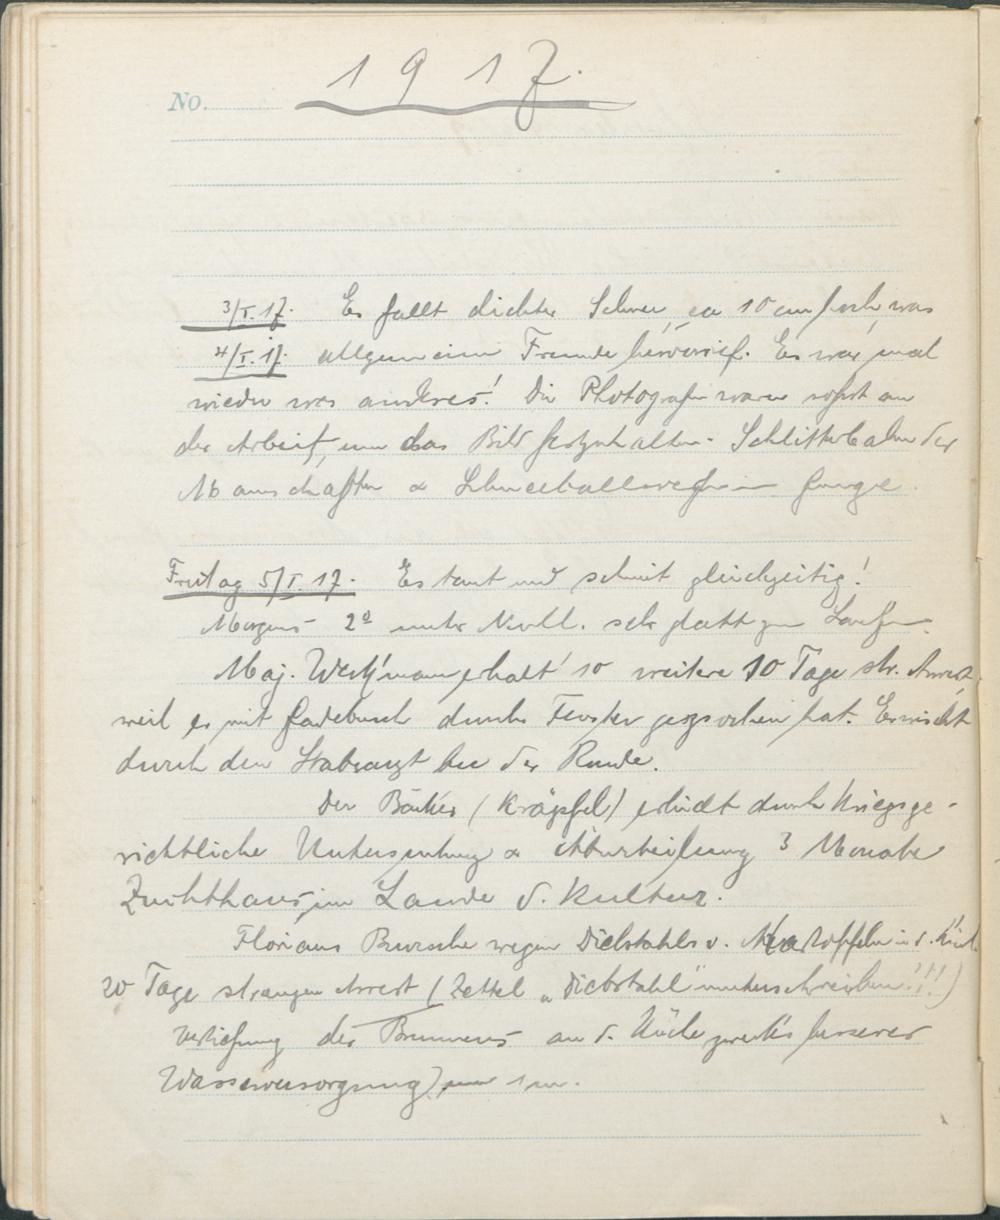 1917.
No.
3/I.17. Es fällt dichter Schnee, ca 10 cm hoch was
4/I.17. allgemeine Freude hervorrief. Es war mal
wieder was anderes! Die Photografen waren sofort an
der Arbeit, um das Bild festzuhalten. Schlitterbahn der
Mannschaften & Schneeballwerfen im Gange.
Freitag 5/I.17. Es taut und schneit gleichzeitig!
Morgens 2° unter Null. sehr glatt zum Laufen.
Maj. erhält 10 weitere 10 Tage str. Arrest
weil er mit Gadebusch durchs Fenster gesprochen hat. Erwischt
durch den Stabsarzt bei der Runde.
Der Bäcker (Kräpfel) erhielt durch Kriegsge-
richtliche Untersuchung & Aburteilung 3 Monate
Zuchthaus im Lande d. Kultur.
Florians Bursche wegen Diebstahls v. Kartoffeln in d. Küch.
20 Tage strengen Arrest (Zettel „Diebstahl" unterschreiben!!!)
Vertiefung des Brunnens an d. Küche zwecks besserer
Wasserversorgung, um 1 m.